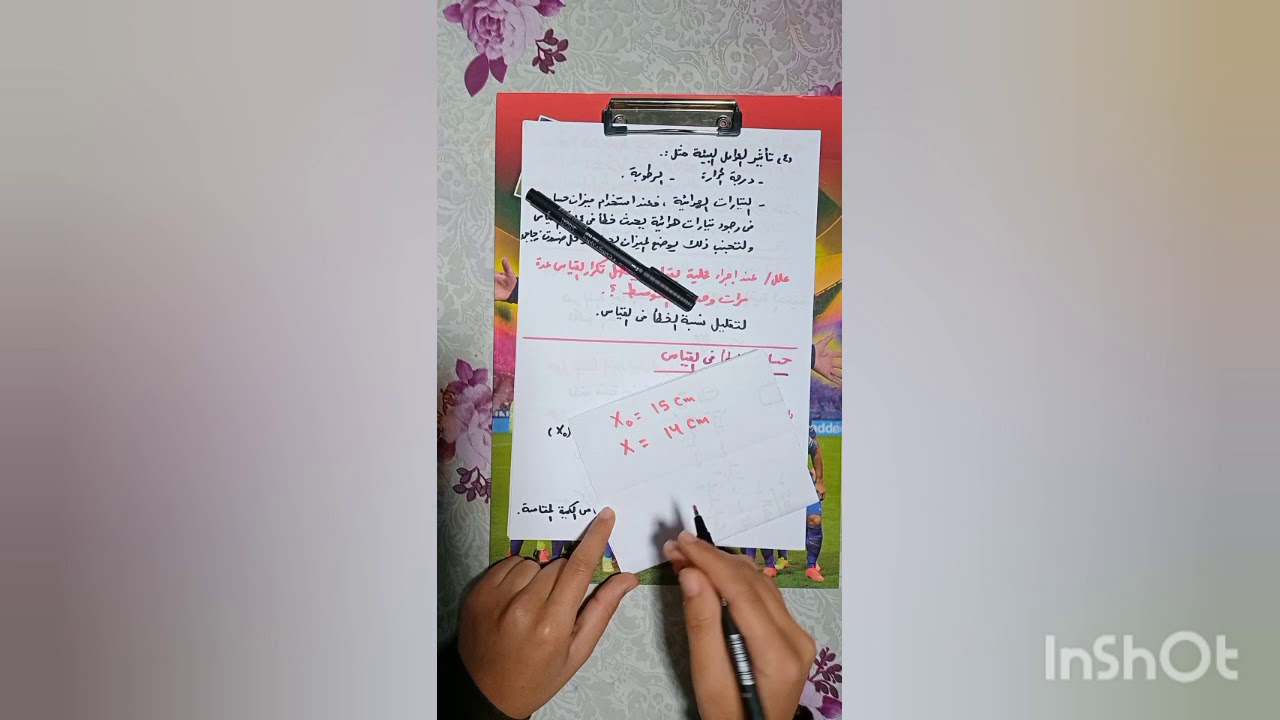 (٤) تأثير العوامل البيئة مثل :-
- درجة الحرارة - الرطوبة .
- التيارات الهوائية ، فعند استخدام ميزان حسا
فى وجود تيارات هوائية يحدث خطأ فى القياس
ولتجنب ذلك يوضع الميزان صندوق زجاجى
علل/ عند اجراء عملية تكرار القياس عدة
مرات المتوسط ؟.
لتقليل نسبة الخطأ فى القياس.
حسا الخطأ فى القياس
X₀ = 15 cm
X = 14 cm
(X₀)
من الكمية المقاسة.
InShOt